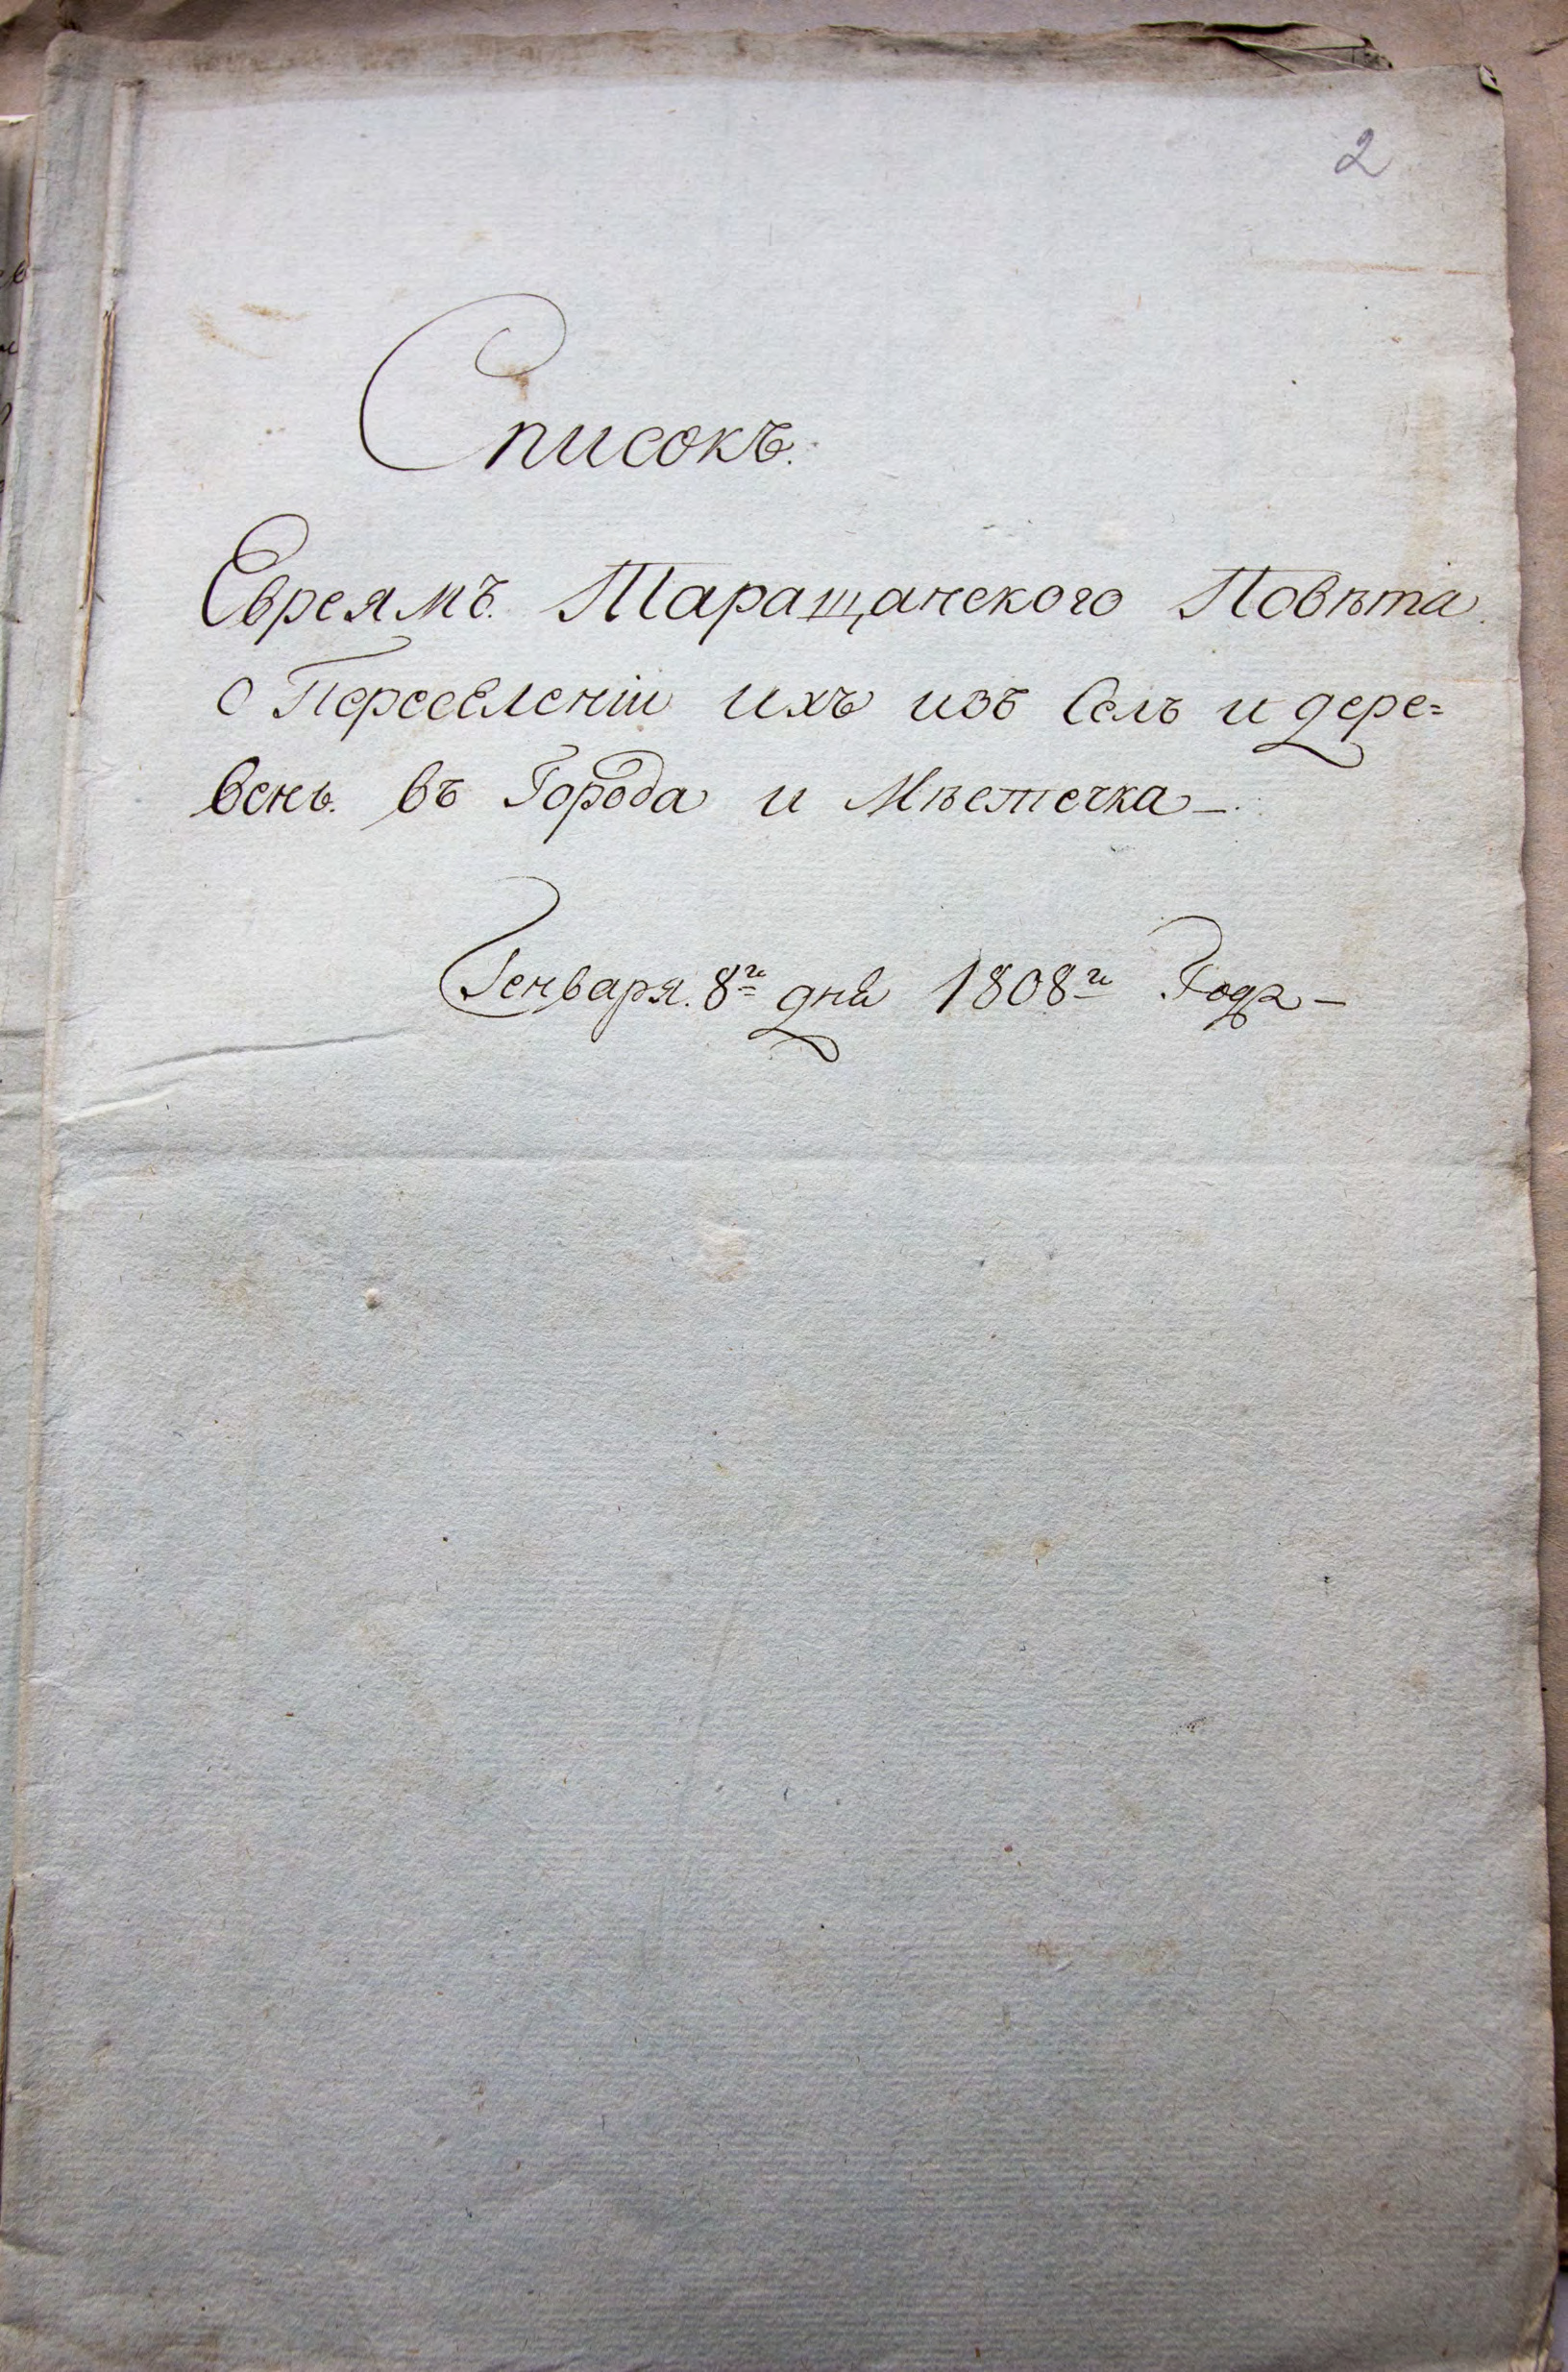 2
Списокъ.
Евреямъ. Таращанского Повѣта.
о Переселеніи ихъ изъ Селъ и дере=
вень. въ Города и Мѣстечка —.
Генваря. 8го дня 1808го Года —